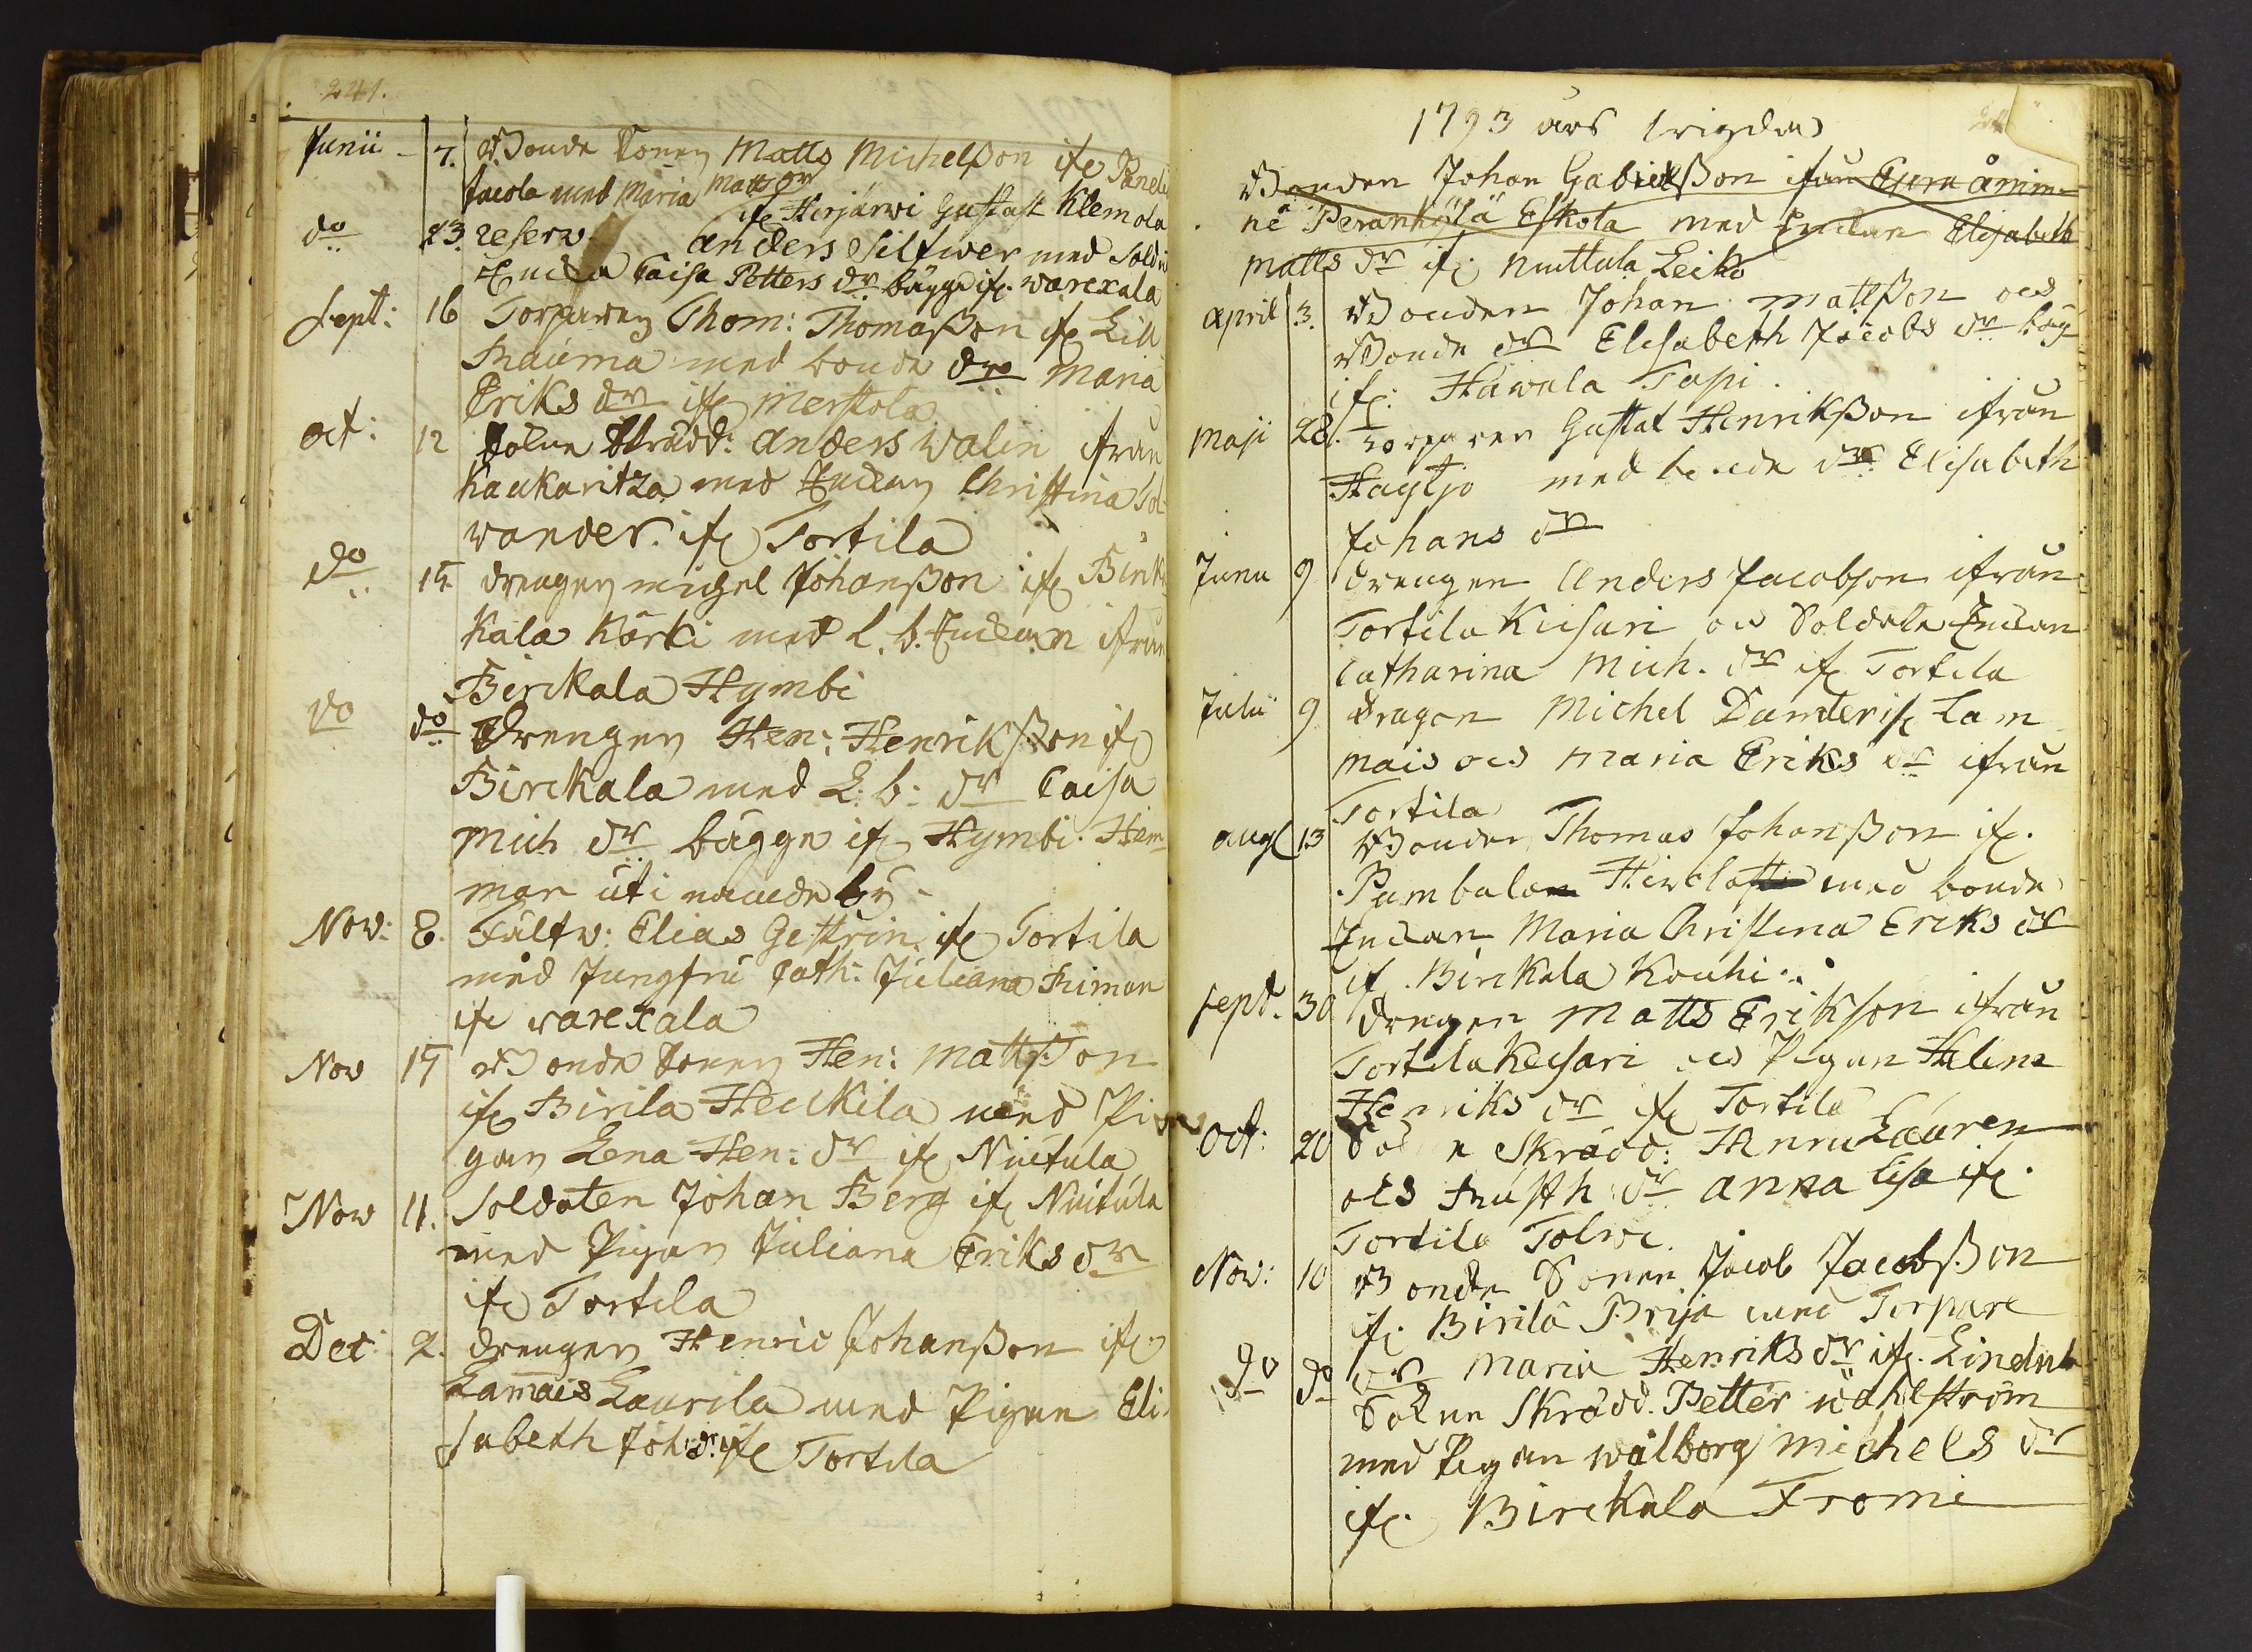 241.
Junii - 7. Bonde Sonen Matts Michelsson ifr Panelia
Jacola med Maria Matts dr
do 23. reserv. ifr Herjärwi Gustaf Klemola
anders Silfwer med Sold:
Enckan Caisa Petters dr bägge ifr. warexala
Sept: 16 Torparen Thom: Thomasson ifr Lill
Rauma med bonde dr Maria
Eriks dr ifr Merstola
oct: 12 Sokne Skrädd: Anders Walin ifrån
Kaukaritza med Enckan Christina Tol-
wander. ifr Tortila
do 15 drengen Michel Johansson ifr Birk
Kala Kärki med L. b. Enckan ifrån
Birckala Hymbi
do do Drengen Hen: Henriksson ifr
Birckala med L: b: dr Caisa
Mich dr bägge ifr Hymbi Hem
man uti nämde by -
Nov: 8. Fältw: Elias Gestrin ifr Tortila
med Jungfru Cath: Juliana Himan
ifr warexala
Nov 15 Bonde Sonen Hen: Mattsson
ifr Birila Heickila med Pi
gan Lena Hen: dr ifr Nuitula
Nov 11. Soldaten Johan Berg ifr Nuitula
med Pigan Juliana Eriks dr
ifr Tortila
Dec: 2. drengen Henric Johansson ifr
Lamais Laurila med Pigan Eli
sabeth Joh: dr ifr Tortila
1793 års wigda
Bonden Johan Gabrielsson ifrån Ejura åmin-
ne Peränkylä Eskola med Enckan Elisabeth
Matts dr ifr Nuittula Leiko
April 3. Bonden Johan Mattsson och
Bonde dr Elisabeth Jacobs dr bäg
ifr: Hawula Tapi.
Maji 28. Torparen Gustaf Henriksson ifrån
Hagtjo med bonde dr Elisabeth
Johans dr
Junii 9 drengen Anders Jacobson ifrån
Tortila Kiisari och Soldate Enckan
Catharina Mich. dr ifr Tortila
Julii 9 dragon Michel Dunder ifr Lam
mais och Maria Eriks dr ifrån
Tortila
aug 13 Bonden Thomas Johansson ifr.
Pambalan med bonde
Enckan Maria Christina Eriks dr
ifr. Birckala Kouhi
Sept. 30 drengen Matts Erikson ifrån
Tortila Keisari och Pigan Helena
Henriks dr ifr Tortila
Oct: 20 Sokne Skrädd: Henric Lauren
och Rusth: dr Anna Lisa ifr.
Tortila Tolwi.
Nov: 10 Bonde Sonen Jacob Jacobsson
ifr. Birila Prija med Torpare
dr Maria Henriks dr ifr. Lindnt
do do Sokne Skrädd. Petter Wahlström
med Pigan Walborg Michels dr
ifr. Birckala Fromi